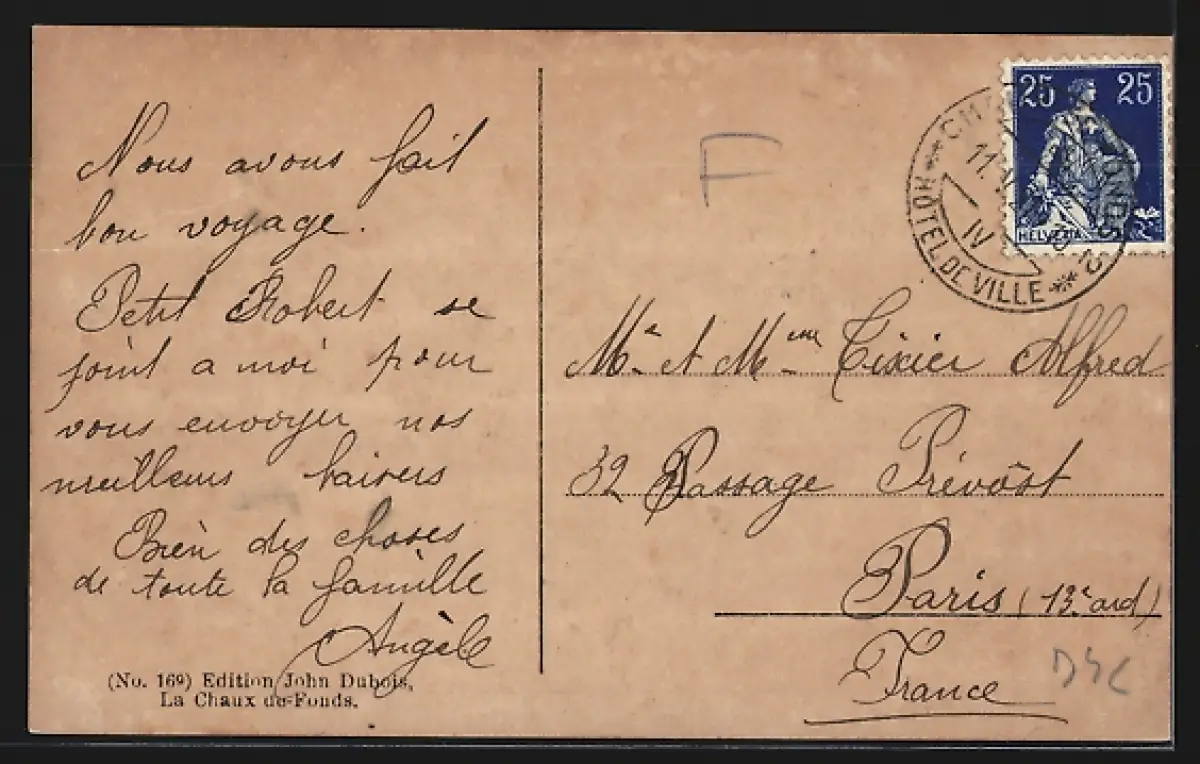 Nous avons fait
bon voyage.
Petit Robert se
joint a moi pour
vous envoyer nos
meilleurs baisers
Bien des choses
de toute la famille
Angèle
(No. 169) Edition John Dubois,
La Chaux de-Fonds.
F
25 25
HELVETIA
HÔTEL DE VILLE
IV
Mr et Mme Tixier Alfred
32 Passage Prévôst
Paris (13e ard)
France